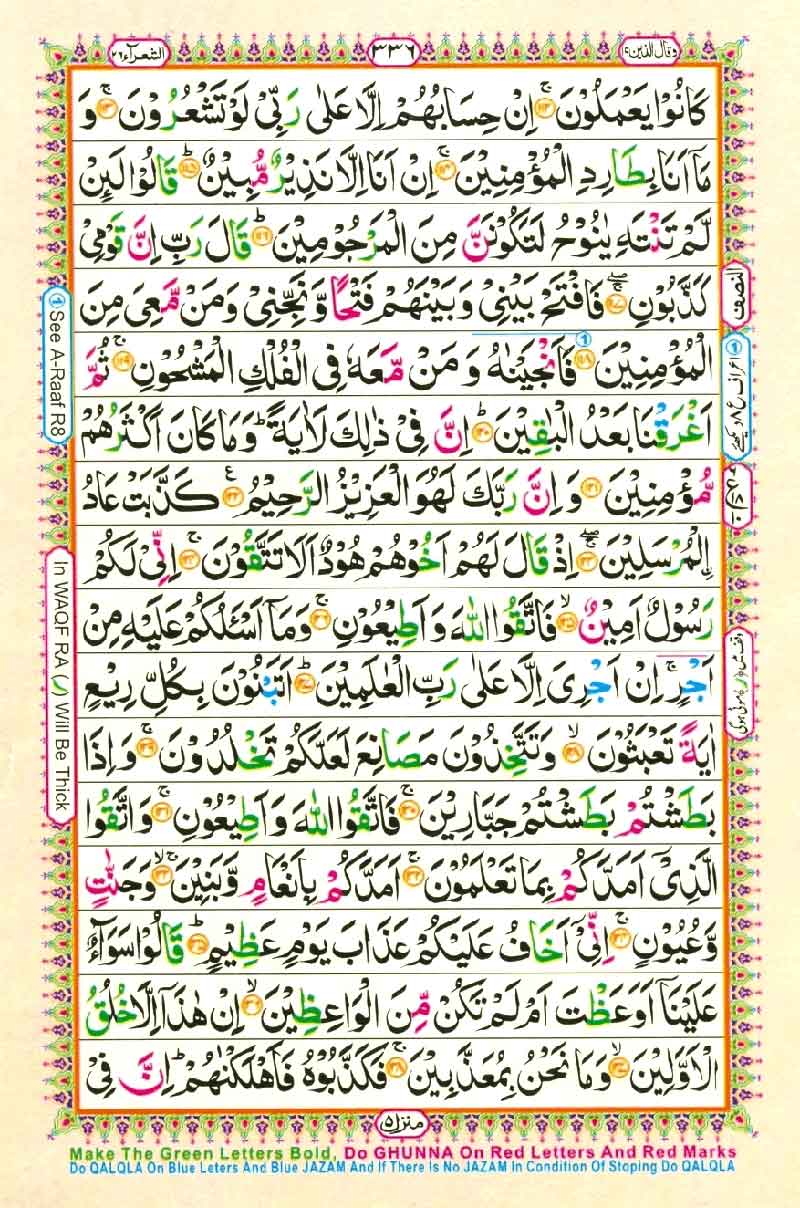 وقال الذين ١٩
٣٣٦
الشعرآء ٢٦
كَانُوْا يَعْمَلُوْنَ ۚ﴿۱۱۲﴾ اِنْ حِسَابُهُمْ اِلَّا عَلٰى رَبِّىْ لَوْ تَشْعُرُوْنَ ۚ﴿۱۱۳﴾ وَ
مَاۤ اَنَا بِطَارِدِ الْمُؤْمِنِيْنَ ۚ﴿۱۱۴﴾ اِنْ اَنَا اِلَّا نَذِيْرٌ مُّبِيْنٌ ؕ﴿۱۱۵﴾ قَالُوْا لَئِنْ
لَّمْ تَنْتَهِ يٰنُوْحُ لَتَكُوْنَنَّ مِنَ الْمَرْجُوْمِيْنَ ؕ﴿۱۱۶﴾ قَالَ رَبِّ اِنَّ قَوْمِىْ
كَذَّبُوْنِ ۚۖ﴿۱۱۷﴾ فَافْتَحْ بَيْنِىْ وَبَيْنَهُمْ فَتْحًا وَّنَجِّنِىْ وَمَنْ مَّعِىَ مِنَ
الْمُؤْمِنِيْنَ ﴿۱۱۸﴾ فَاَنْجَيْنٰهُ وَمَنْ مَّعَهٗ فِى الْفُلْكِ الْمَشْحُوْنِ ۚ﴿۱۱۹﴾ ثُمَّ
اَغْرَقْنَا بَعْدُ الْبٰقِيْنَ ؕ﴿۱۲۰﴾ اِنَّ فِىْ ذٰلِكَ لَاٰيَةً ؕ وَمَا كَانَ اَكْثَرُهُمْ
مُّؤْمِنِيْنَ ﴿۱۲۱﴾ وَاِنَّ رَبَّكَ لَهُوَ الْعَزِيْزُ الرَّحِيْمُ ﴿۱۲۲﴾ كَذَّبَتْ عَادُ
اۨلْمُرْسَلِيْنَ ۚۖ﴿۱۲۳﴾ اِذْ قَالَ لَهُمْ اَخُوْهُمْ هُوْدٌ اَلَا تَتَّقُوْنَ ۚ﴿۱۲۴﴾ اِنِّىْ لَكُمْ
رَسُوْلٌ اَمِيْنٌ ۙ﴿۱۲۵﴾ فَاتَّقُوا اللّٰهَ وَاَطِيْعُوْنِ ۚ﴿۱۲۶﴾ وَمَاۤ اَسْـَٔلُكُمْ عَلَيْهِ مِنْ
اَجْرٍ ۚ اِنْ اَجْرِىَ اِلَّا عَلٰى رَبِّ الْعٰلَمِيْنَ ؕ﴿۱۲۷﴾ اَتَبْنُوْنَ بِكُلِّ رِيْعٍ
اٰيَةً تَعْبَثُوْنَ ۙ﴿۱۲۸﴾ وَتَتَّخِذُوْنَ مَصَانِعَ لَعَلَّكُمْ تَخْلُدُوْنَ ۚ﴿۱۲۹﴾ وَاِذَا
بَطَشْتُمْ بَطَشْتُمْ جَبَّارِيْنَ ۚ﴿۱۳۰﴾ فَاتَّقُوا اللّٰهَ وَاَطِيْعُوْنِ ۚ﴿۱۳۱﴾ وَاتَّقُوا
الَّذِىْۤ اَمَدَّكُمْ بِمَا تَعْلَمُوْنَ ۚ﴿۱۳۲﴾ اَمَدَّكُمْ بِاَنْعَامٍ وَّبَنِيْنَ ۚۙ﴿۱۳۳﴾ وَجَنّٰتٍ
وَّعُيُوْنٍ ۚ﴿۱۳۴﴾ اِنِّىْۤ اَخَافُ عَلَيْكُمْ عَذَابَ يَوْمٍ عَظِيْمٍ ؕ﴿۱۳۵﴾ قَالُوْا سَوَآءٌ
عَلَيْنَاۤ اَوَعَظْتَ اَمْ لَمْ تَكُنْ مِّنَ الْوَاعِظِيْنَ ۙ﴿۱۳۶﴾ اِنْ هٰذَاۤ اِلَّا خُلُقُ
الْاَوَّلِيْنَ ۙ﴿۱۳۷﴾ وَمَا نَحْنُ بِمُعَذَّبِيْنَ ۚ﴿۱۳۸﴾ فَكَذَّبُوْهُ فَاَهْلَكْنٰهُمْ ؕ اِنَّ فِىْ
النصف
① اعراف ع ۸ دیکھئے
وقف میں (ر) موٹی ہوگی
① See A-Raaf R8
In WAQF RA (ر) Will Be Thick
منزل ۵
Make The Green Letters Bold, Do GHUNNA On Red Letters And Red Marks
Do QALQLA On Blue Leters And Blue JAZAM And If There Is No JAZAM In Condition Of Stoping Do QALQLA